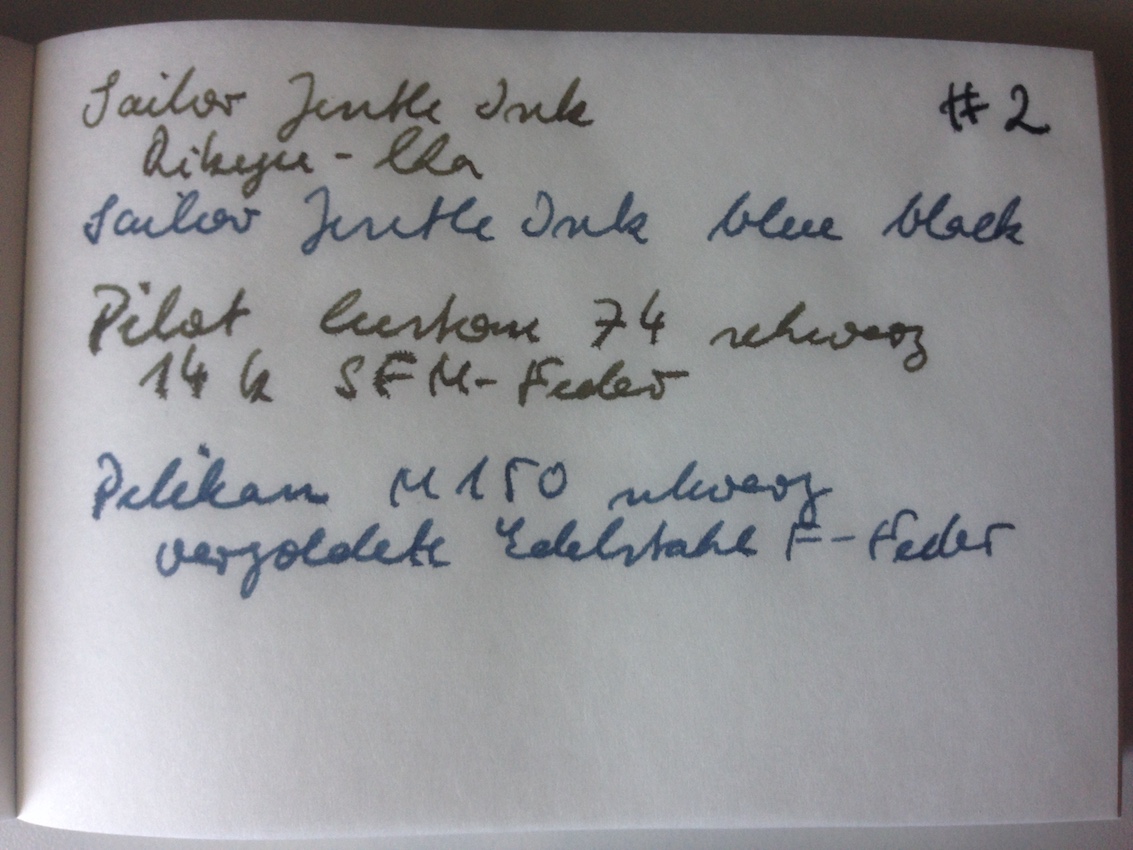 Sailor Jentle Ink #2
Rikyu-Cha
Sailor Jentle Ink blue black
Pilot Custom 74 schwarz
14 k SFM-Feder
Pelikan M150 schwarz
vergoldete Edelstahl F-Feder